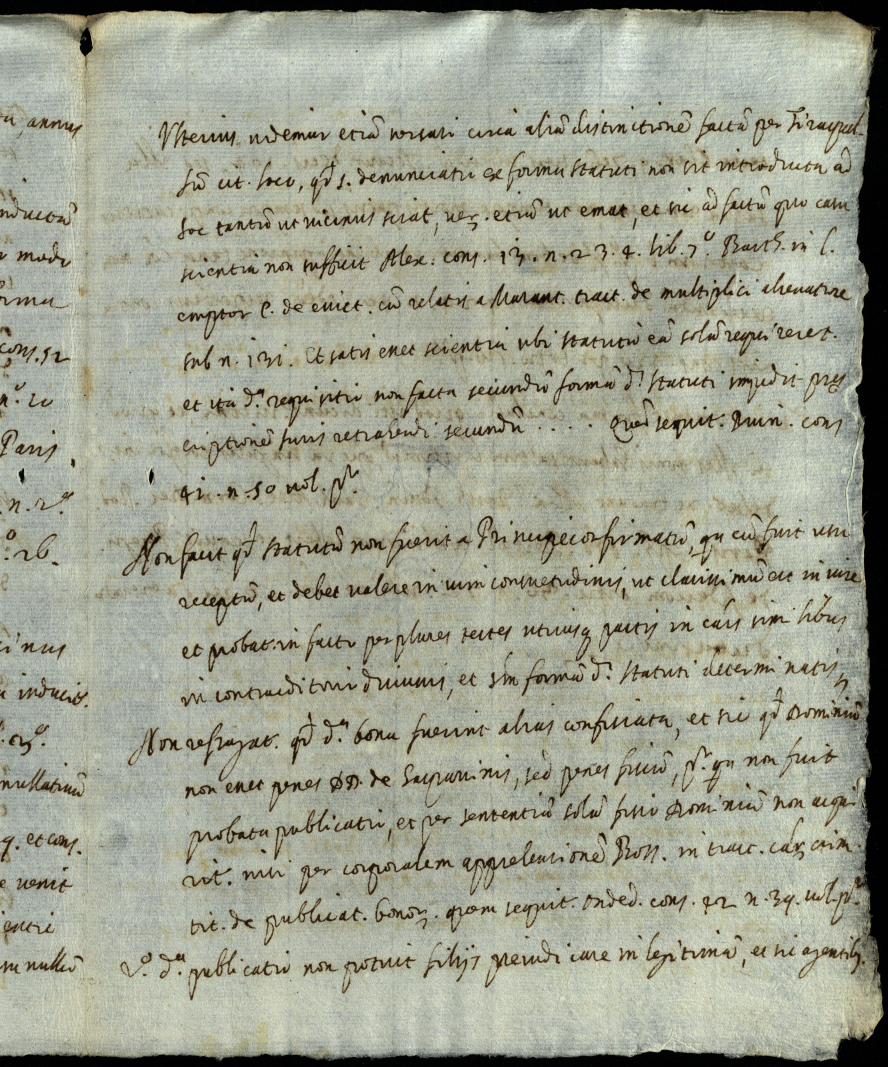 tu, annus
Ulterius videmur etiā versari circa aliā distinctionē factā per Tiraquel-
lū cit. loco, qđ s. denunciatio ex forma statuti non sit introducta ad
hoc tantū ut vicinus sciat, ver. etiā ut emat, et sic ad factū quo casu
scientia non sufficit Alex. cons. 13. n. 2 3. 4. lib. 7.º Barth. in l.
emptor C. de evict. cū relatis a Marant. tract. de multiplici alienatione
sub n. 131. Et satis esset scientia ubi statutū eā solū requireret.
et ita d.ª requisitio non facta secundū formā d.ⁱ statuti impedit pres
criptionē juris retrahendi secundū . . . . . quē sequit. Bruni. cons
41. n. 50 vol. pº.
Non facit qđ statutū non fuerit a Principe confirmatū, qa cū fuit usu
receptū, et debet valere in vim consuetudinis, ut clarissimū est in iure
et probat. in facto per plures testes utriusq partis in caūs similibus
in contradictorio decisis, et sm formā d.ⁱ statuti determinatis
Non refragat. qđ d.ª bona fuerint alias confiscata, et sic qđ Dominiū
non esset penes DD. de, sed penes fiscū, pº. qa non fuit
probata publicatio, et per sententiā solū fisco Dominiū non acqui
rit. nisi per corporalem apprehensionē Ross. in tract. caūs crim.
tit. de publicat. bonor. quem sequit. Onded. cons. 42 n. 39. vol. pº.
2.º d.ª publicatio non potuit filijs preiudicare in legitimā, et sic agentib.
inducta
modo
forma
cons. 52
n.º 20
Paris
n. 2.º
26.
inducit.
nullatinū
9. et cons.
venit
nullū